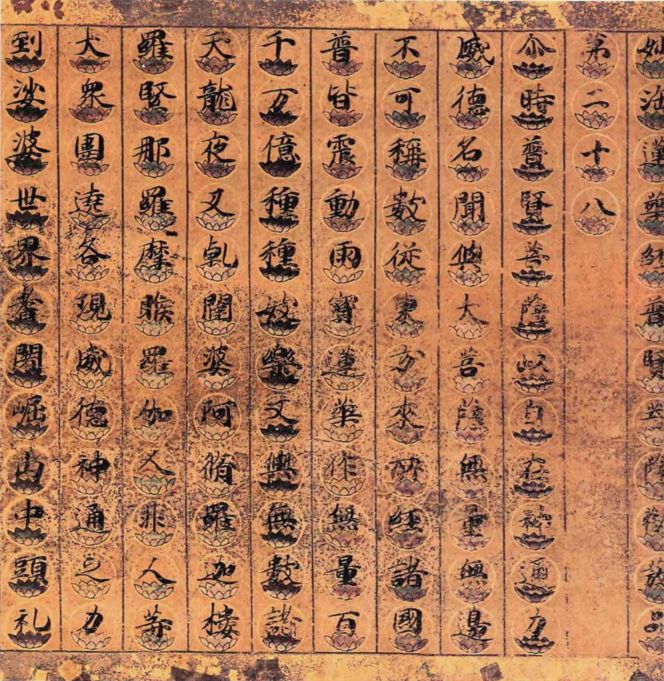 妙法蓮華經普賢菩薩勸發品
第二十八
尒時普賢菩薩以自在神通力
威德名聞與大菩薩無量無邊
不可稱數從東方來所經諸國
普皆震動雨寶蓮華作無量百
千万億種種妓樂又與無數諸
天龍夜叉乹闥婆阿脩羅迦樓
羅緊那羅摩睺羅伽人非人等
大衆圍遶各現威德神通之力
到娑婆世界耆闍崛山中頭礼